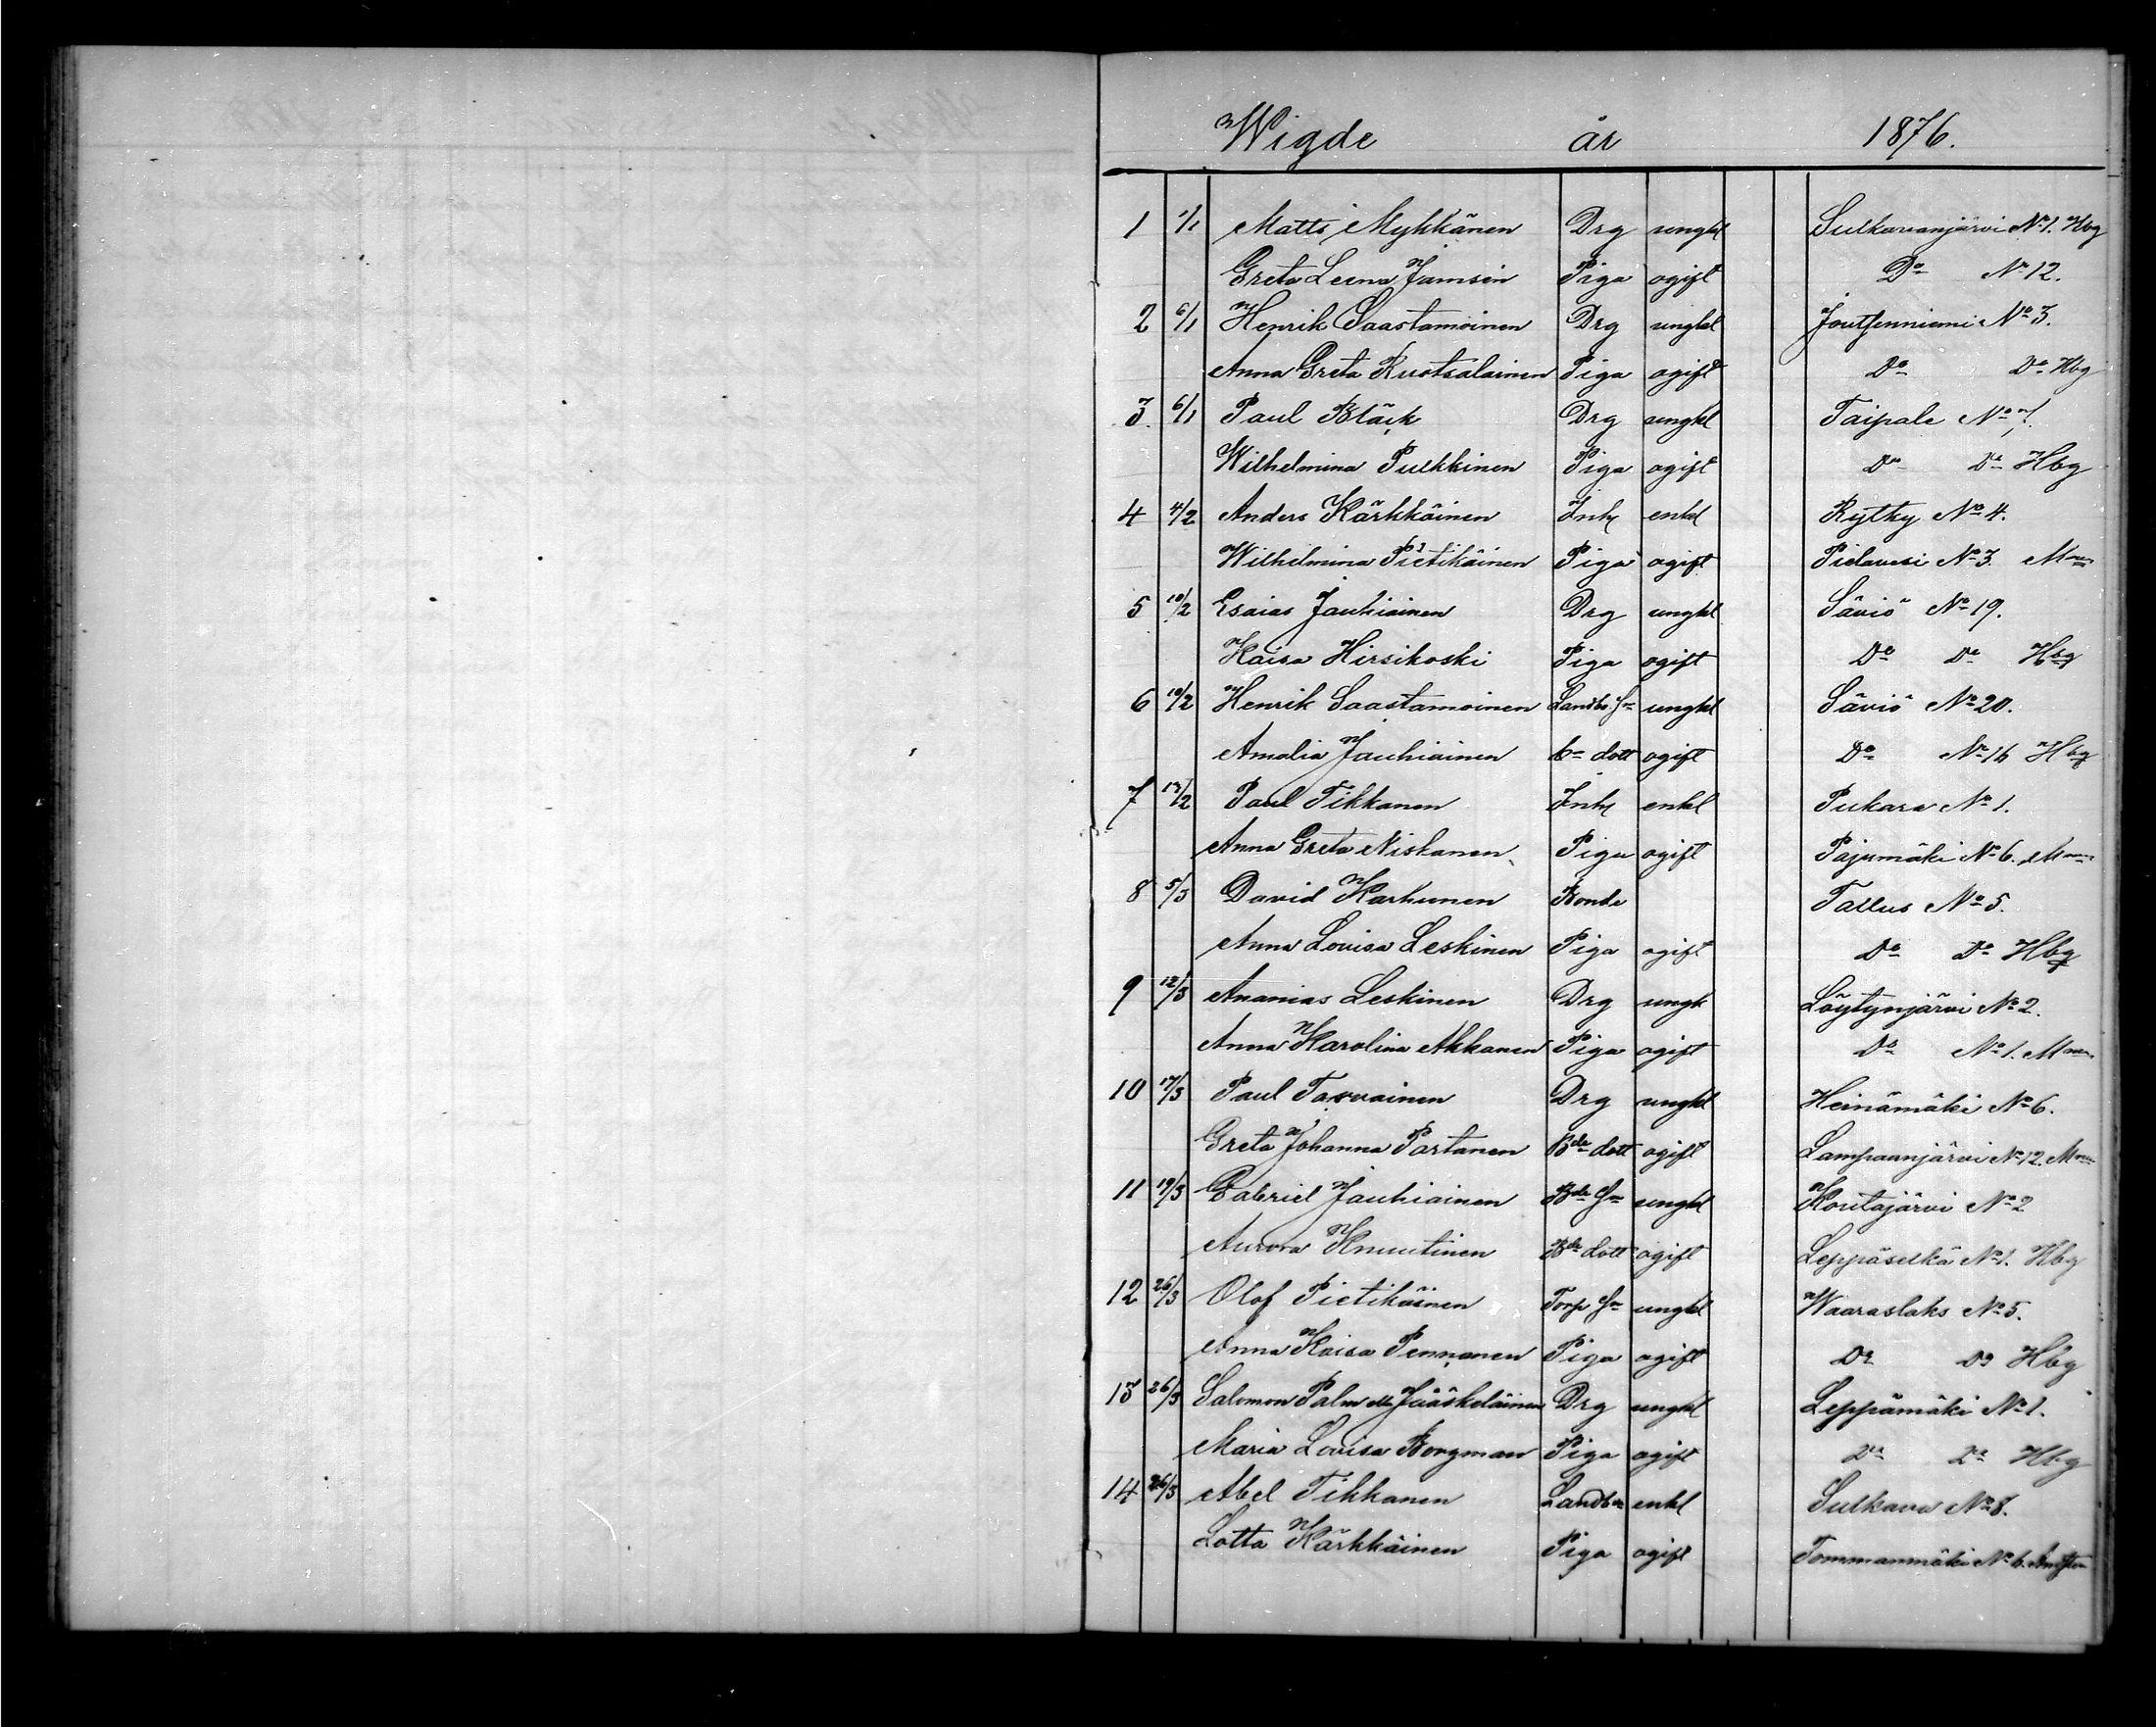 Wigde år 1876.
1 1/1 Matts Mykkänen Drg ungkl Sulkavanjärvi No 1. Hbg
Greta Leena Jamsén Piga ogift Do No 12.
2 6/1 Henrik Saastamoinen Drg ungkl Joutsenniemi No 3.
Anna Greta Ruotsalainen Piga ogift Do Do Hbg
3. 6/1 Paul Bläck Drg ungkl Taipale No 7.
Wilhelmina Pulkkinen Piga ogift Do Do Hbg
4 4/2 Anders Kärkkäinen Inh enkl Rytky No 4.
Wilhelmina Pietikäinen Piga ogift Pielavesi No 3.
5 10/2 Esaias Jauhiainen Drg ungkl Säviö No 19.
Kaisa Hirsikoski Piga ogift Do Do Hbg
6 10/2 Henrik Saastamoinen Landb. Sn ungkl Säviö No 20.
Amalia Jauhiainen dott ogift Do No 16 Hbg
7 13/2 Paul Tikkanen Inh enkl Pukara No 1.
Anna Greta Niskanen Piga ogift Pajumäki No 6.
8 5/3 David Karhunen Bonde Tallus No 5.
Anna Lovisa Leskinen Piga ogift Do Do Hbg
9 12/3 Ananias Leskinen Drg ungk Löytynjärvi No 2.
Anna Karolina Akkanen Piga ogift Do No 1.
10 17/3 Paul Tarvainen Drg ungkl Heinämäki No 6.
Greta Johanna Partanen Bde dott ogift Lampaanjärvi No 12.
11 19/3 Gabriel Jauhiainen Bde Sn ungkl Koutajärvi No 2
Aurora Knuutinen Bde dott ogift Leppäselkä No 1. Hbg
12 26/3 Olof Pietikäinen Torp Sn ungkl Waaraslaks No 5.
Anna Kaisa Pennanen Piga ogift Do Do Hbg
13 26/3 Salomon Palm ell. Jääskeläinen Drg ungkl Leppämäki No 1.
Maria Lovisa Borgman Piga ogift Do Do Hbg
14 26/3 Abel Tikkanen Landb enkl Sulkava No 8.
Lotta Kärkkäinen Piga ogift Tommanmäki No 6.